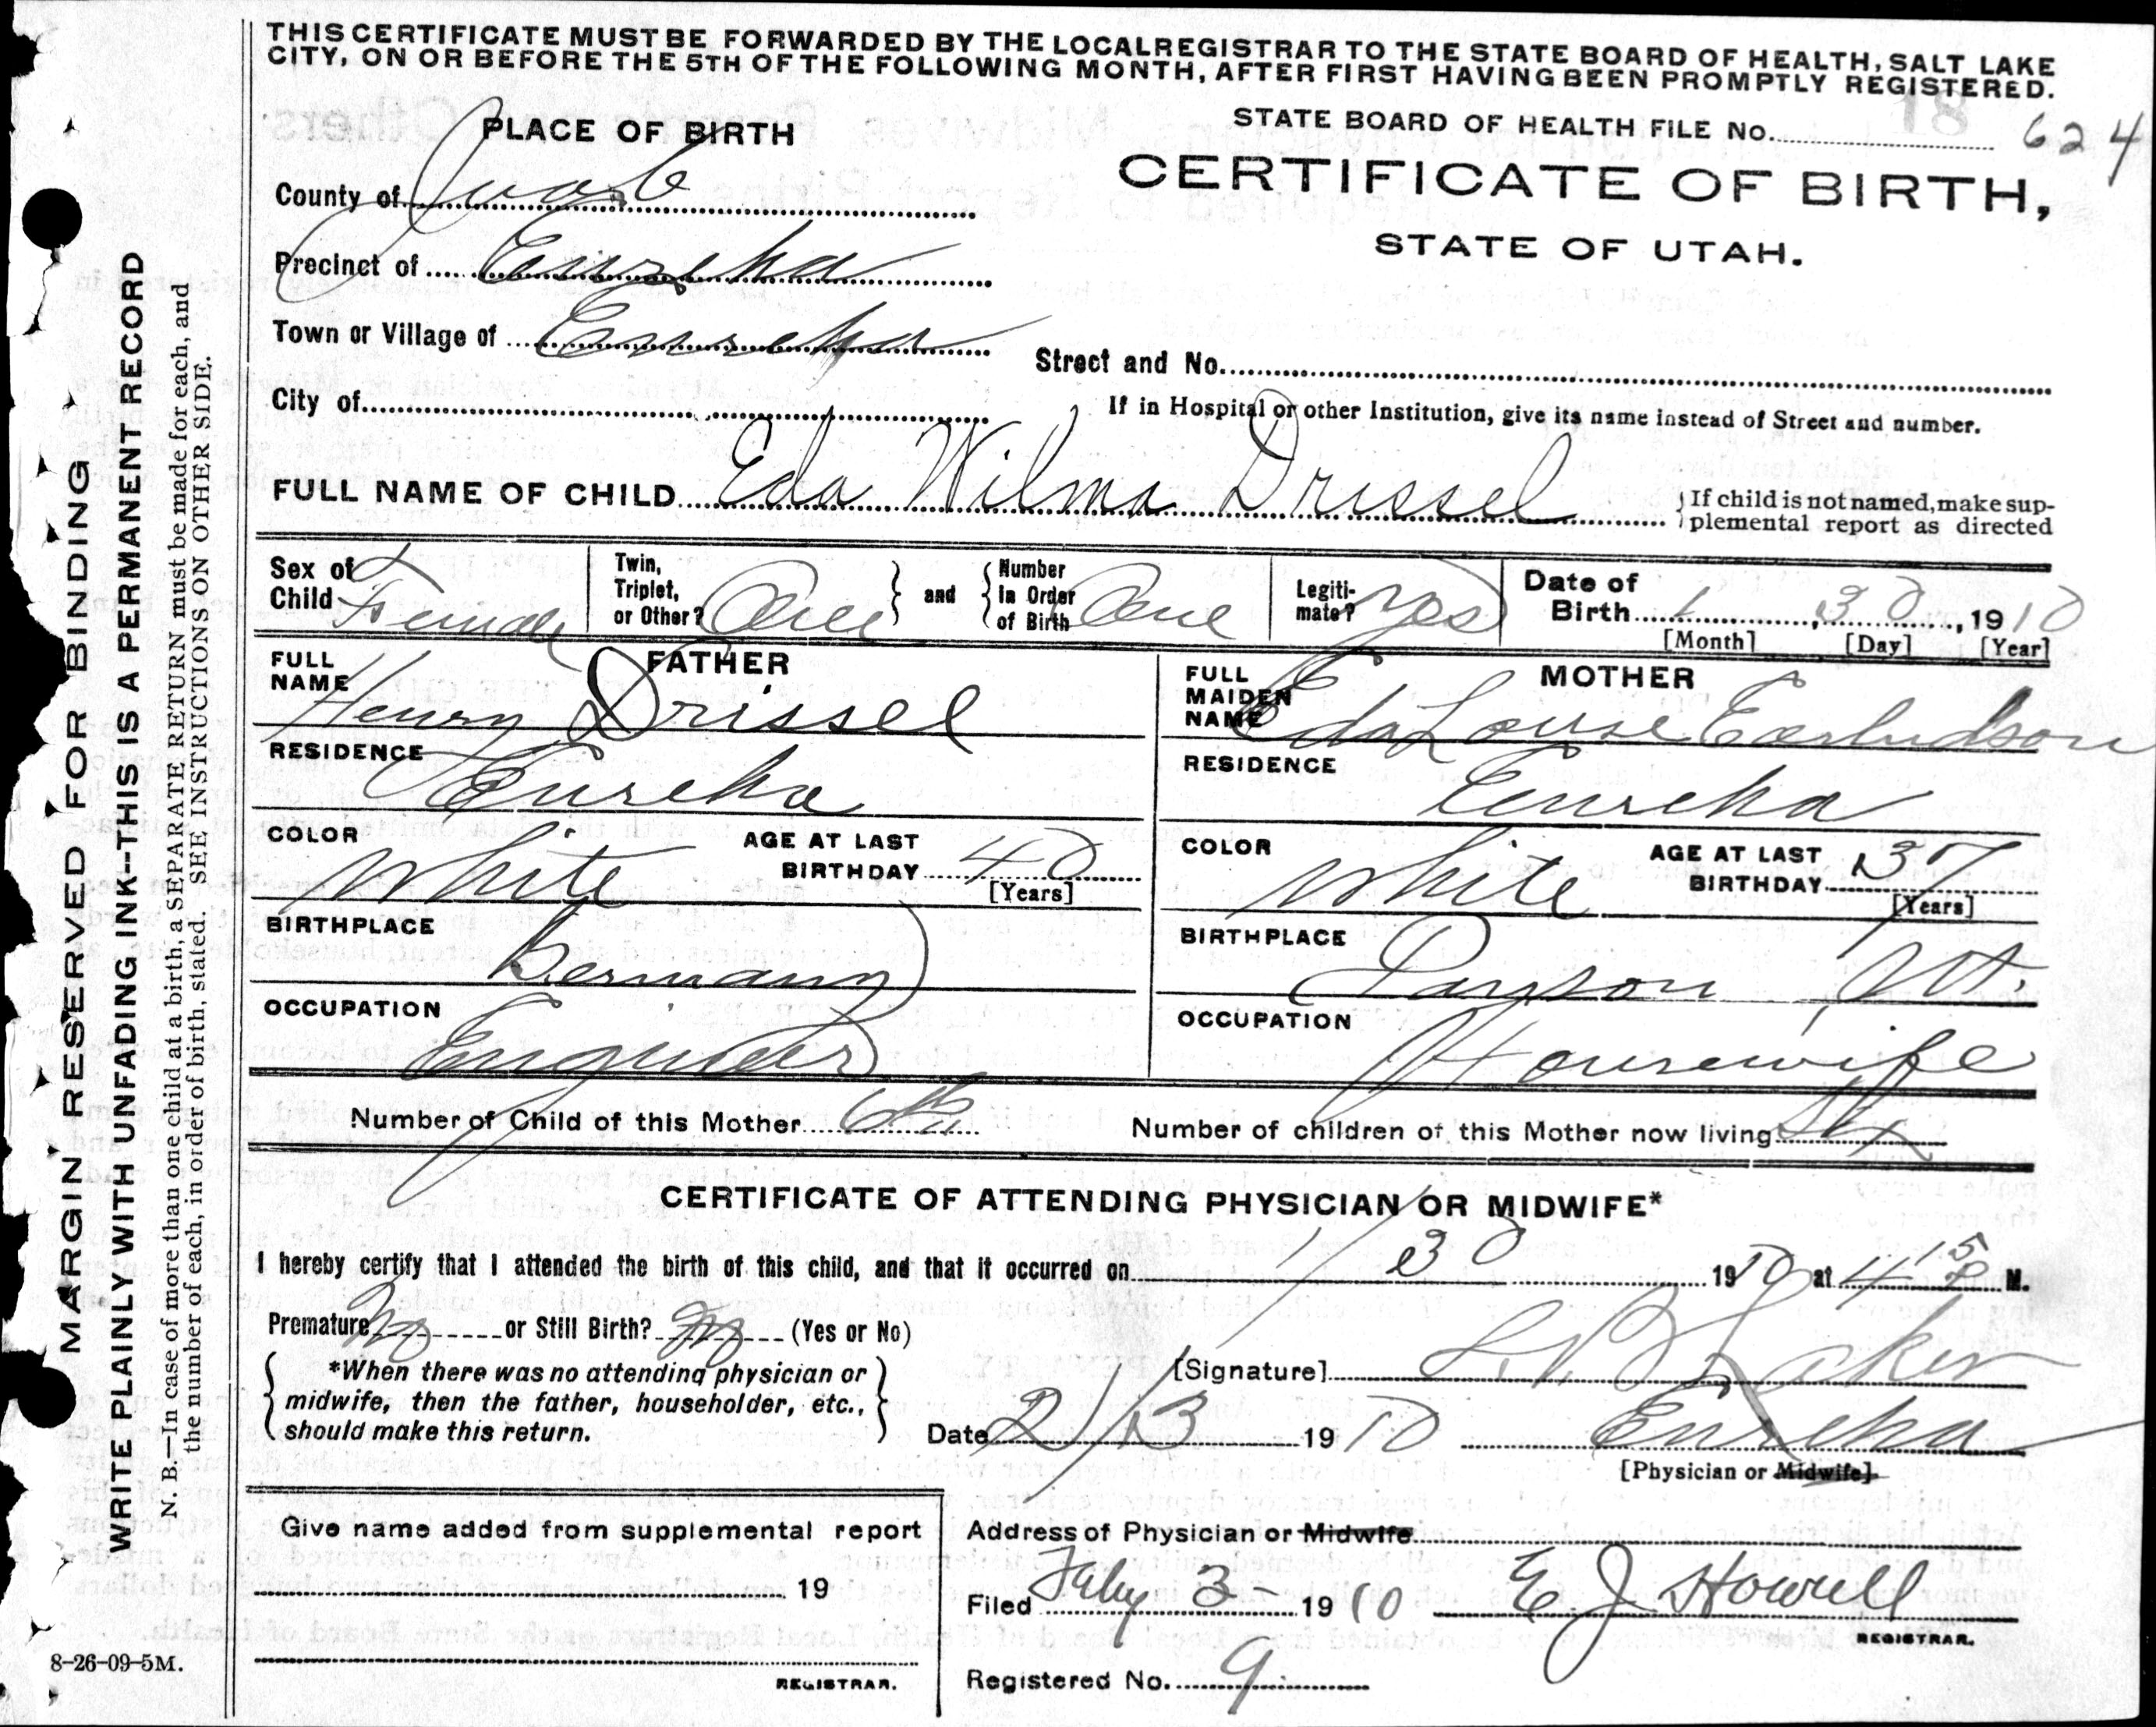 THIS CERTIFICATE MUST BE FORWARDED BY THE LOCAL REGISTRAR TO THE STATE BOARD OF HEALTH, SALT LAKE
CITY, ON OR BEFORE THE 5TH OF THE FOLLOWING MONTH, AFTER FIRST HAVING BEEN PROMPTLY REGISTERED.
18
STATE BOARD OF HEALTH FILE No. 624
PLACE OF BIRTH
CERTIFICATE OF BIRTH,
STATE OF UTAH.
County of Juab
Precinct of Eureka
Town or Village of Eureka
Street and No.
City of
If in Hospital or other Institution, give its name instead of Street and number.
FULL NAME OF CHILD Eda Wilma Drissel
If child is not named, make sup-
plemental report as directed
Sex of Child Female
Twin, Triplet, or Other? One
and Number In Order of Birth One
Legiti-mate? Yes
Date of Birth 1, 30, 1910
[Month] [Day] [Year]
FATHER
FULL NAME Henry Drissel
RESIDENCE Eureka
COLOR White AGE AT LAST BIRTHDAY 40
[Years]
BIRTHPLACE Germany
OCCUPATION Engineer
MOTHER
FULL MAIDEN NAME Eda Louise
RESIDENCE Eureka
COLOR White AGE AT LAST BIRTHDAY 37
[Years]
BIRTHPLACE Payson, Ut.
OCCUPATION Housewife
Number of Child of this Mother 6th
Number of children of this Mother now living Six
CERTIFICATE OF ATTENDING PHYSICIAN OR MIDWIFE*
I hereby certify that I attended the birth of this child, and that it occurred on 1/30 1910 at 4 15 P M.
Premature No or Still Birth? No (Yes or No)
*When there was no attending physician or
midwife, then the father, householder, etc.,
should make this return.
[Signature]
Date 2/3 1910 Eureka
[Physician or Midwife]
Give name added from supplemental report
19
REGISTRAR.
Address of Physician or Midwife
Filed Feby 3 - 1910 E J Howell
REGISTRAR.
Registered No. 9
8-26-09-5M.
MARGIN RESERVED FOR BINDING
WRITE PLAINLY WITH UNFADING INK--THIS IS A PERMANENT RECORD
N. B.—In case of more than one child at a birth, a SEPARATE RETURN must be made for each, and
the number of each, in order of birth, stated. SEE INSTRUCTIONS ON OTHER SIDE.